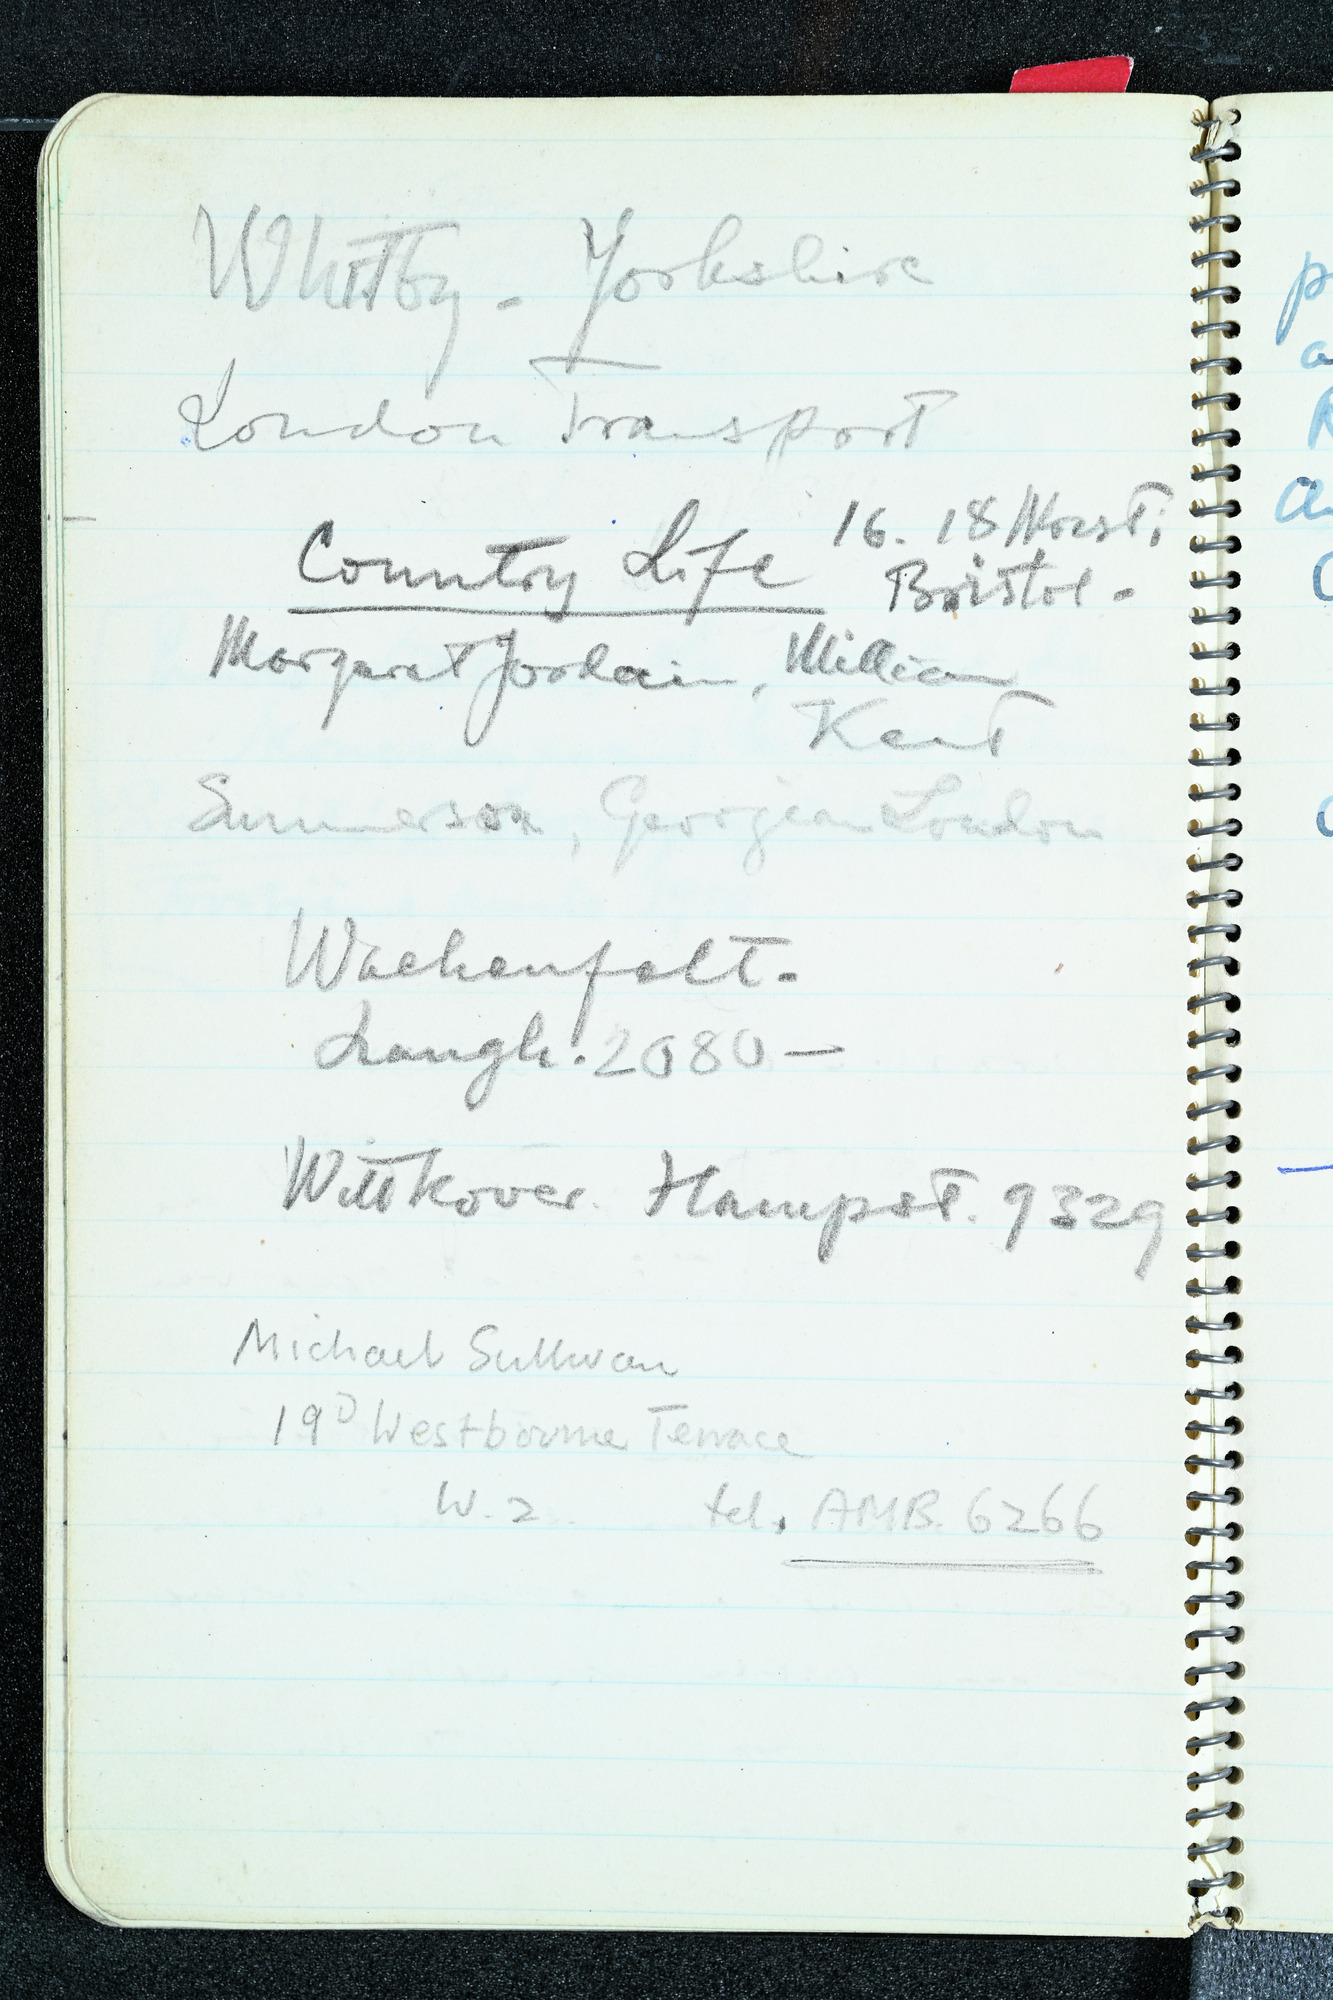 Whitby - Yorkshire
London Transport
Country Life 16. 18
Bristol -
Margaret Jourdain, William
Kent
Summerson, Georgian London
Langh. 2080 —
Wittkover. Hampst. 9329
Michael Sullivan
19D Westbourne Terrace
W. 2. tel. AMB. 6266
p
a
R